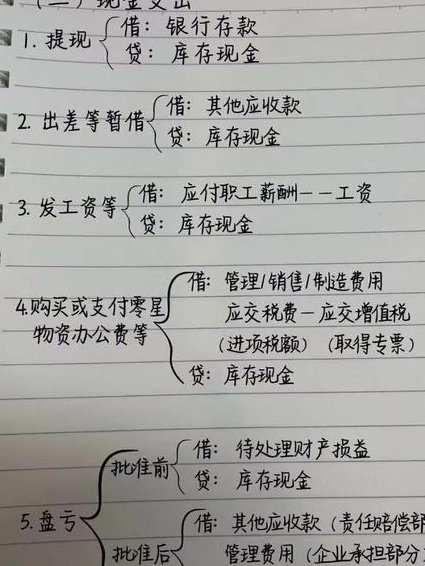 (二) 现金支出
1. 提现 借: 银行存款
贷: 库存现金
2. 出差等暂借 借: 其他应收款
贷: 库存现金
3. 发工资等 借: 应付职工薪酬——工资
贷: 库存现金
4.购买或支付零星 借: 管理/销售/制造费用
物资办公费等 应交税费—应交增值税
(进项税额) (取得专票)
贷: 库存现金
批准前 借: 待处理财产损益
贷: 库存现金
5. 盘亏 借: 其他应收款 (责任赔偿部
批准后 管理费用 (企业承担部分